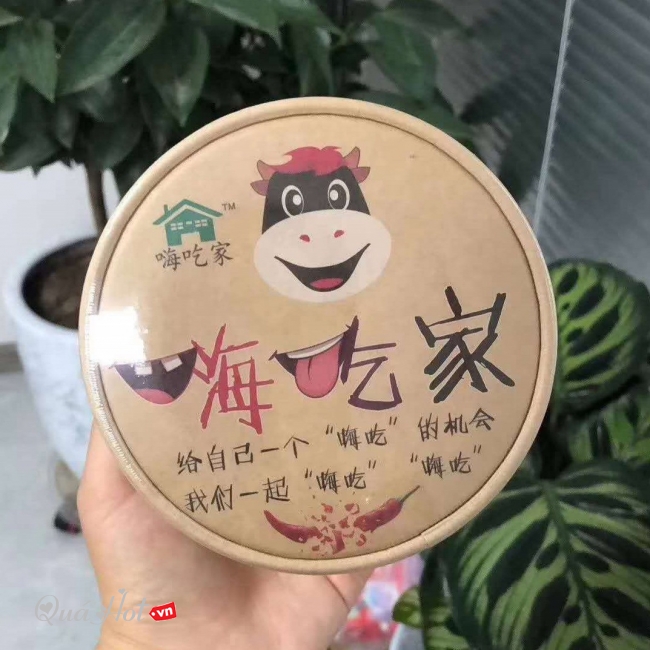 TM
嗨吃家
嗨吃家
给自己一个“嗨吃”的机会
我们一起“嗨吃”“嗨吃”
Quà Hot .vn